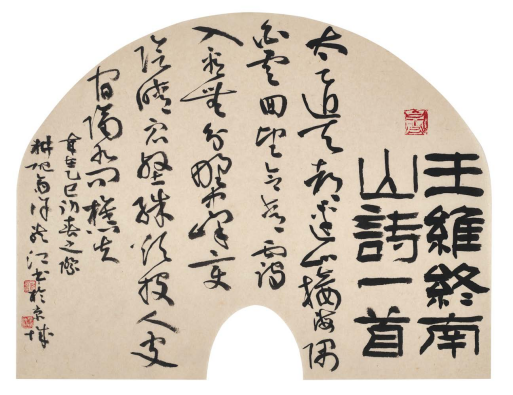 王維終南
山詩一首
太乙近天都連山接海隅
白雲回望合青靄
入看無分野中峰變
陰晴眾壑殊欲投人處
宿隔水問樵夫
乙巳初春之際
書於京城